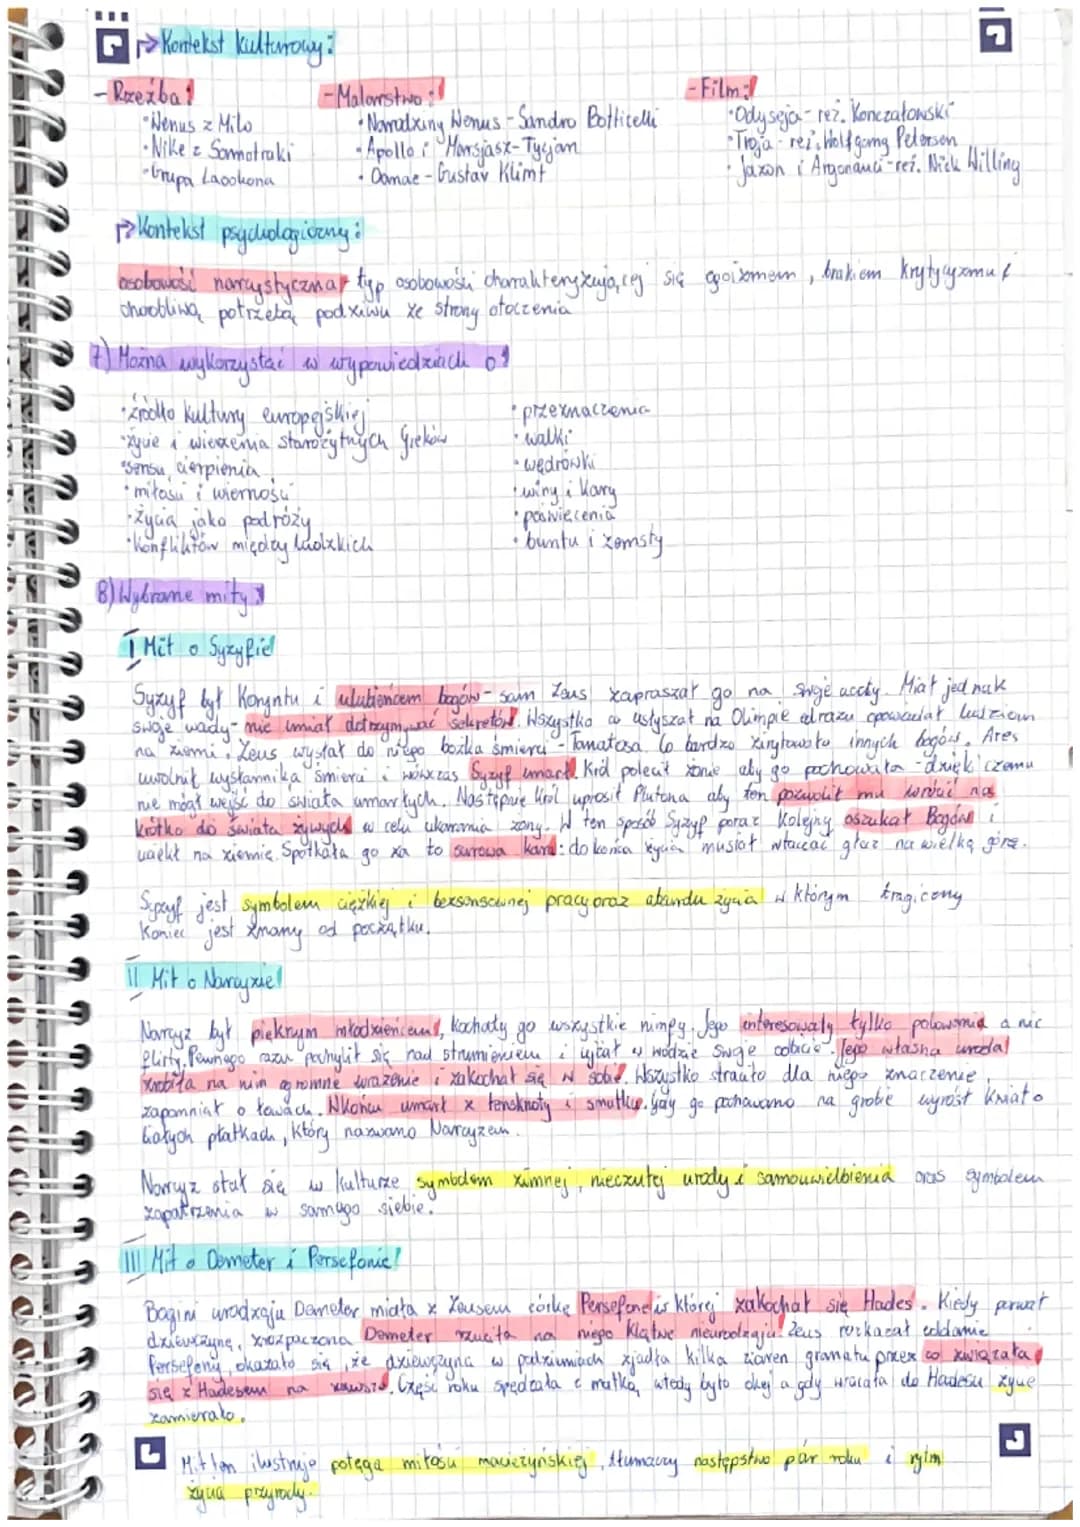 Kontekst kulturowy:
- Rzeźba:
• Wenus z Milo
• Nike z Samotraki
• Grupa Laookona
- Malarstwo:
• Narodziny Wenus - Sandro Botticelli
• Apollo i Marsjasz - Tycjan
• Danae - Gustav Klimt
- Film:
• Odyseja - reż. Konczałowski
• Troja - reż. Wolfgang Petersen
• Jazon i Argonauci - reż. Nick Willing
Kontekst psychologiczny:
osobowość narcystyczna - typ osobowości charakteryzującej się egoizmem, brakiem krytycyzmu i
chorobliwą potrzebą podziwu ze strony otoczenia
7) Można wykorzystać w wypowiedziach o:
• źródło kultury europejskiej
• życie i wierzenia starożytnych Greków
• sensu cierpienia
• miłości i wierności
• życia jako podróży
• konfliktów między ludzkich
• przeznaczenia
• walki
• wędrówki
• winy i kary
• poświęcenia
• buntu i zemsty
8) Wybrane mity:
I Mit o Syzyfie!
Syzyf był Koryntu i ulubieńcem bogów - sam Zeus zapraszał go na swoje uczty. Miał jednak
swoje wady - nie umiał dotrzymywać sekretów. Wszystko co usłyszał na Olimpie odrazu opowiadał ludziom
na ziemi. Zeus wysłał do niego bożka śmierci - Tanatosa. Co bardzo zirytowało innych bogów. Ares
uwolnił wysłannika śmierci i wówczas Syzyf umarł. Król polecił żonie aby go pochowała - dzięki czemu
nie mógł wejść do świata umarłych. Następnie król uprosił Plutona aby ten pozwolił mu wrócić na
krótko do świata żywych w celu ukarania żony. W ten sposób Syzyf poraz kolejny oszukał Bogów i
uciekł na ziemię. Spotkała go za to surowa kara: do końca życia musiał wtaczać głaz na wielką górę.
Syzyf jest symbolem ciężkiej i bezsensownej pracy oraz absurdu życia w którym tragiczny
koniec jest znany od początku.
II Mit o Narcyzie!
Narcyz był pięknym młodzieńcem, kochały go wszystkie nimfy. Jego interesowały tylko polowania a nic
flirty. Pewnego razu pochylił się nad strumieniem i ujrzał w wodzie swoje odbicie. Jego własna uroda
zrobiła na nim ogromne wrażenie i zakochał się w sobie. Wszystko straciło dla niego znaczenie,
zapomniał o łowach. Wkońcu umarł z tęsknoty i smutku. Gdy go pochowano na grobie wyrósł kwiat o
białych płatkach, który nazwano Narcyzem.
Narcyz stał się w kulturze symbolem zimnej, nieczułej urody i samouwielbienia oraz symbolem
zapatrzenia w samego siebie.
III Mit o Demeter i Persefonie!
Bogini urodzaju Demeter miała z Zeusem córkę Persefone w której zakochał się Hades. Kiedy porwał
dziewczynę, zrozpaczona Demeter rzuciła na niego klątwe nieurodzaju. Zeus rozkazał oddanie
Persefony, okazało się, że dziewczyna w podziemiach zjadła kilka ziaren granatu przez co związała
się z Hadesem na zawsze. Część roku spędzała z matką, wtedy było okej a gdy wracała do Hadesu życie
zamierało.
Mit ten ilustruje potęgę miłości macierzyńskiej, tłumaczy następstwo pór roku i rytm
życia przyrody.